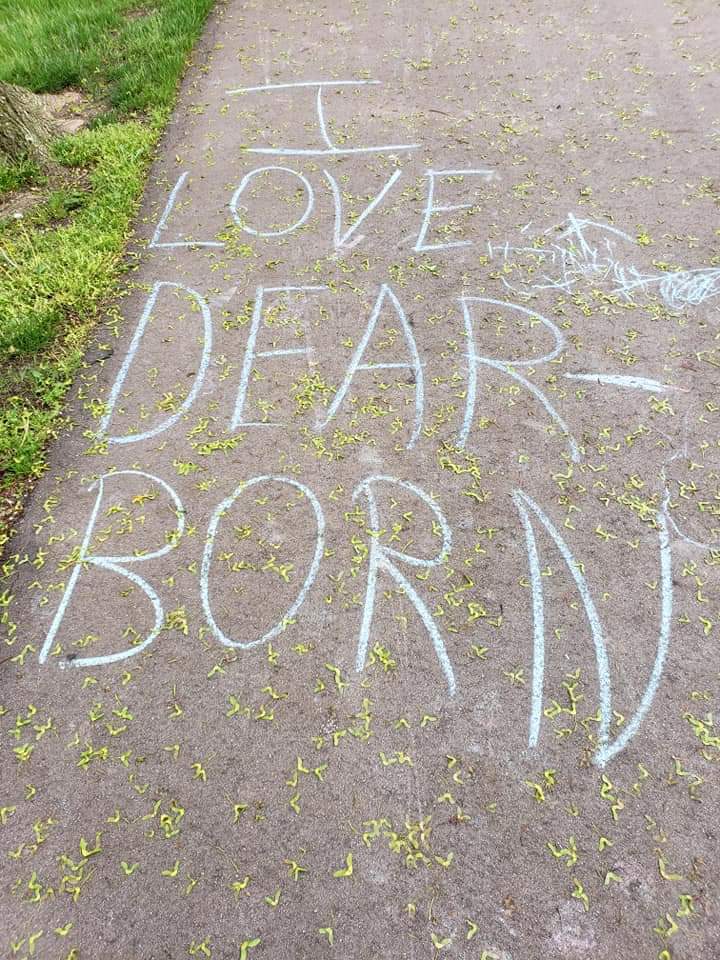 I
LOVE
DEAR-
BORN